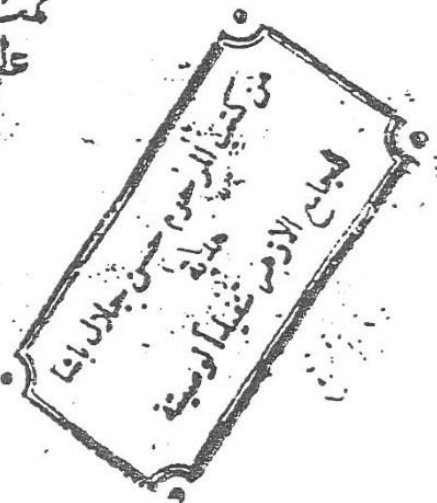 من كتب المرحوم حسن جلال باشا
هدية
للجامع الأزهر تنفيذاً لوصيته